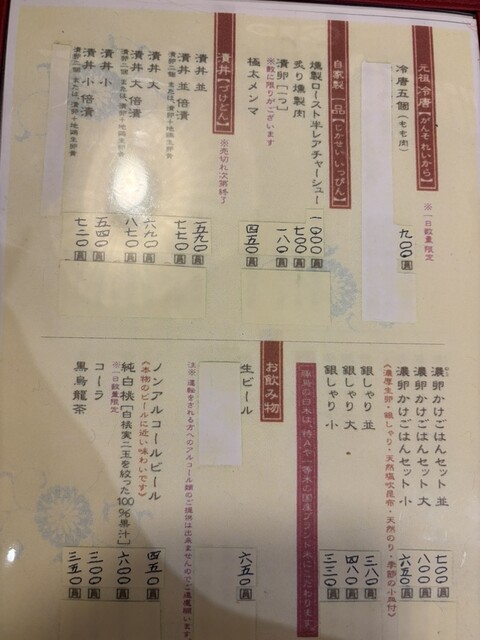 元祖冷唐【がんそれいから】
※一日数量限定
冷唐五個(もも肉)
九〇〇円
自家製一品【じかせいいっぴん】
燻製ロースト半レアチャーシュー
一〇〇〇円
炙り燻製肉
七〇〇円
漬卵【一つ】
一八〇円
※数に限りがございます
極太メンマ
四五〇円
漬丼【づけどん】
※売切れ次第終了
漬丼 並
五九〇円
漬丼 並 倍漬
七七〇円
漬丼 大
六九〇円
漬丼 大 倍漬
八七〇円
漬丼 小
五四〇円
漬丼 小 倍漬
七二〇円
濃卵かけごはんセット 並
七〇〇円
濃卵かけごはんセット 大
八〇〇円
濃卵かけごはんセット 小
六五〇円
《濃厚生卵・銀しゃり・天然塩吹昆布・天然のり・季節の小皿付》
銀しゃり 並
三八〇円
銀しゃり 大
四八〇円
銀しゃり 小
三三〇円
お飲み物
生ビール
六五〇円
注※運転をされる方へのアルコール類のご提供は出来ませんのでご遠慮願います。
ノンアルコールビール
四五〇円
《本物のビールに近い味わいです》
純白桃【白桃実二玉を絞った100%果汁】
六〇〇円
※一日数量限定
コーラ
三〇〇円
黒烏龍茶
三五〇円